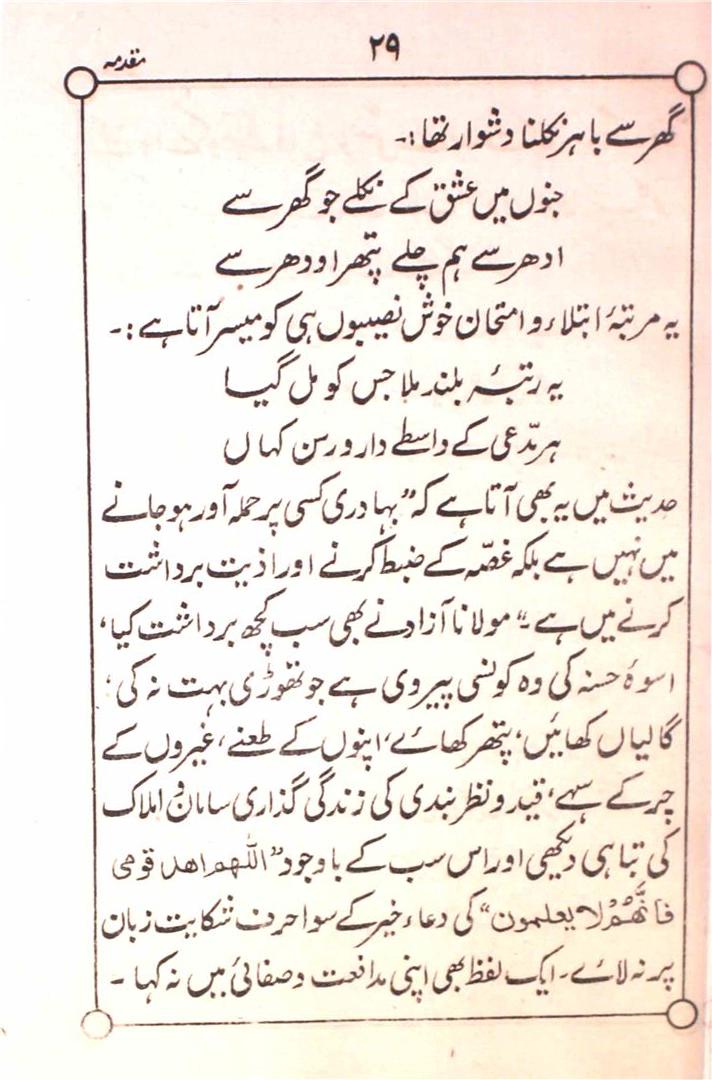 ۲۹
مقدمہ
گھر سے باہر نکلنا دشوار تھا:۔
جنوں میں عشق کے نکلے جو گھر سے
ادھر سے ہم چلے پتھر اودھر سے
یہ مرتبۂ ابتلاء و امتحان خوش نصیبوں ہی کو میسر آتا ہے:۔
یہ رتبۂ بلند ملا جس کو مل گیا
ہر مدّعی کے واسطے دار و رسن کہاں
حدیث میں یہ بھی آتا ہے کہ "بہادری کسی پر حملہ آور ہو جانے
میں نہیں ہے بلکہ غصّہ کے ضبط کرنے اور اذیت برداشت
کرنے میں ہے۔" مولانا آزاد نے بھی سب کچھ برداشت کیا،
اسوۂ حسنہ کی وہ کونسی پیروی ہے جو تھوڑی بہت نہ کی،
گالیاں کھائیں، پتھر کھائے، اپنوں کے طعنے، غیروں کے
چرکے سہے، قید و نظر بندی کی زندگی گذاری سامان و املاک
کی تباہی دیکھی اور اس سب کے باوجود "اللّٰھم اھد قومی
فانّھُمْ لا یعلمون" کی دعاء خیر کے سوا حرف شکایت زبان
پر نہ لائے۔ ایک لفظ بھی اپنی مدافعت و صفائی میں نہ کہا۔